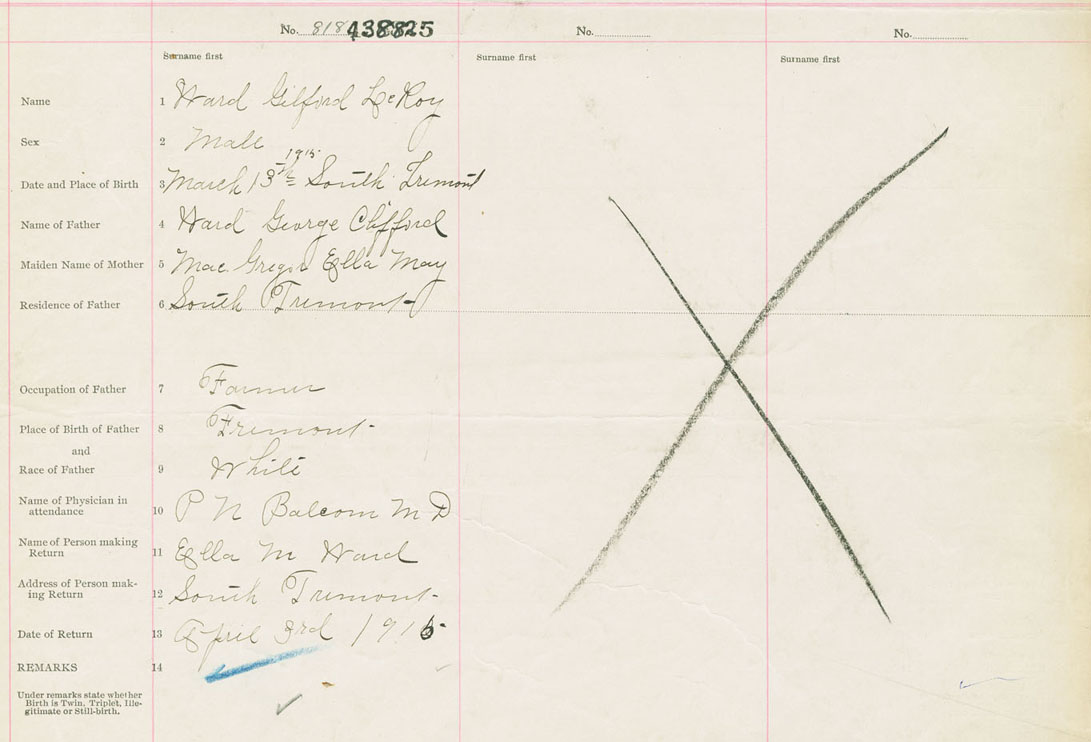 No. 818 438825 No. No.
Surname first Surname first Surname first
Name 1 Ward Gilford LeRoy
Sex 2 Male
1915
Date and Place of Birth 3 March 13th South Tremont
Name of Father 4 Ward George Clifford
Maiden Name of Mother 5 Mac Gregor Ella May
Residence of Father 6 South Tremont
Occupation of Father 7 Farmer
Place of Birth of Father 8 Tremont
and
Race of Father 9 White
Name of Physician in
attendance 10 P N Balcom M D
Name of Person making
Return 11 Ella M Ward
Address of Person mak-
ing Return 12 South Tremont
Date of Return 13 April 3rd 1916
REMARKS 14
Under remarks state whether
Birth is Twin, Triplet, Ille-
gitimate or Still-birth.